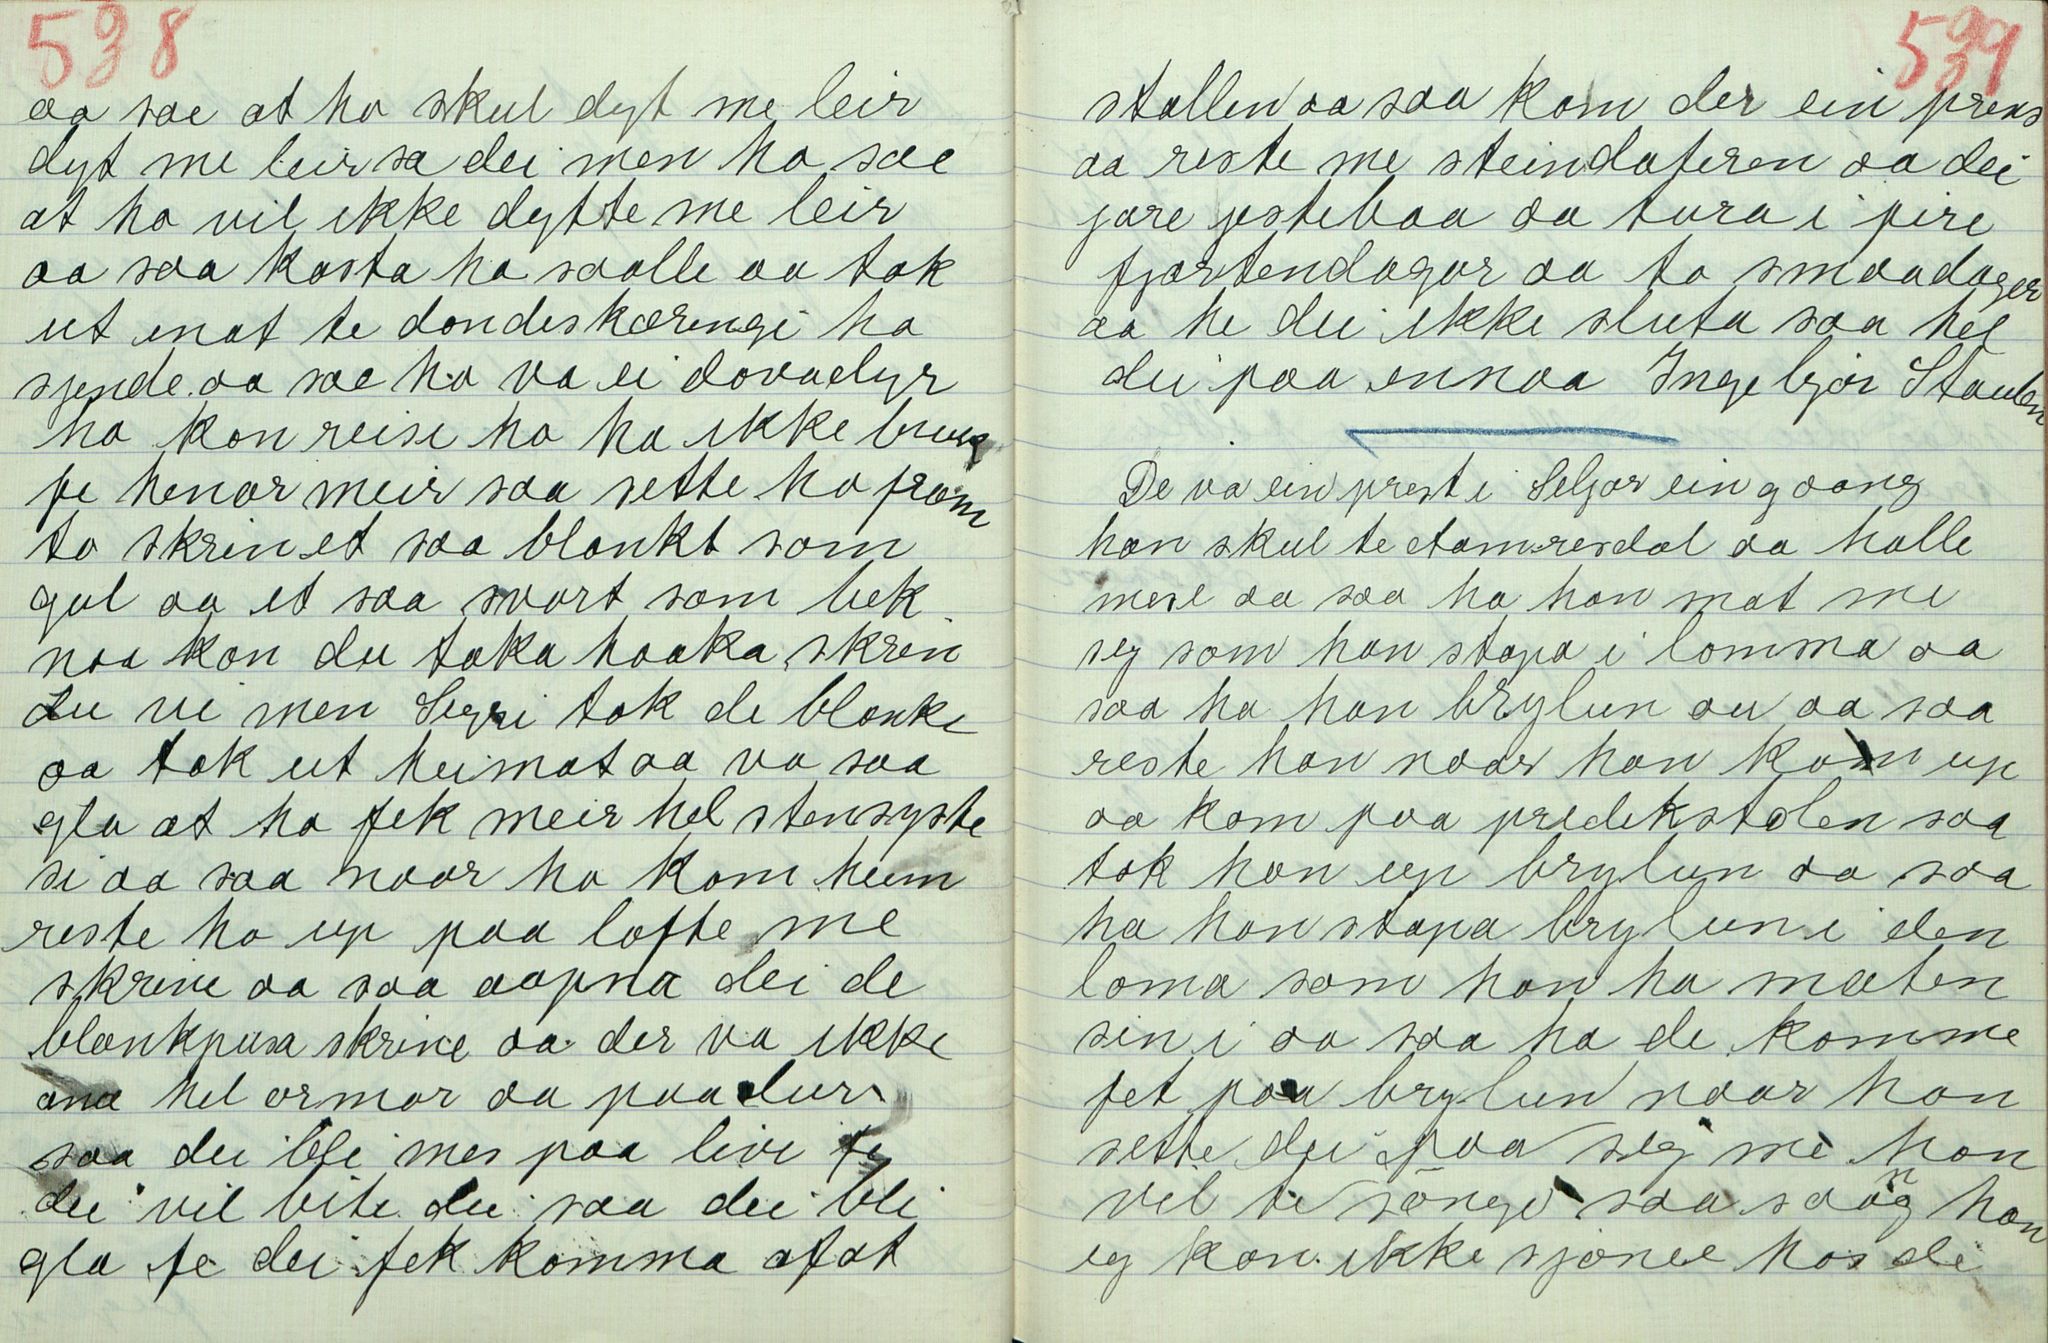 538
aa sae at ho skul dyt me leir
dyt me leir sa dei men ho sae
at ho vil ikke dytte me leir
aa saa kasta ho saalle aa tok
ut enat te dondeskæringi ho
sjende aa sae ho va ei dovadyr
ho kon reise ho ha ikke bruug
fe henar meir saa sette ho fram
to skrin et saa blankt som
gul aa et saa svart som bek
naa kon du taka haaka skrin
du vi men Sigri tok de blanke
aa tok ut heimat aa va saa
gla at ho fek meir hel stensyste
si aa saa naar ho kom heim
reste ho up paa lofte me
skrine aa saa aapna dei de
blankpusa skrine aa der va ikke
ana hel ormar aa paadur
saa dei blei mes paa live fe
dei vil bite dei saa dei blei
gla fe dei fek komma afat
539
stallen aa saa kom der ein prens
aa reste me steindateren aa dei
jore jestebaa aa tura i fire
fjortendagar aa to smaadager
aa he dei ikke sluta saa hel
dei paa ennaa Ingebjør Stauben
De va ein prest i Seljor ein gaang
han skul te Aamresdal aa halle
mese aa saa ha han mat me
seg som han stapa i lomma aa
saa ha han brylun au aa saa
reste han naar han kom up
aa kom paa predekstolen saa
tok han up brylun aa saa
ha han stapa brylun i den
loma som han ha mæten
sin i aa saa ha de komme
fet paa brylun naar han
sette dei paa seg me han
vil te sønge saa saang han
eg kan ikke sjønee hos de